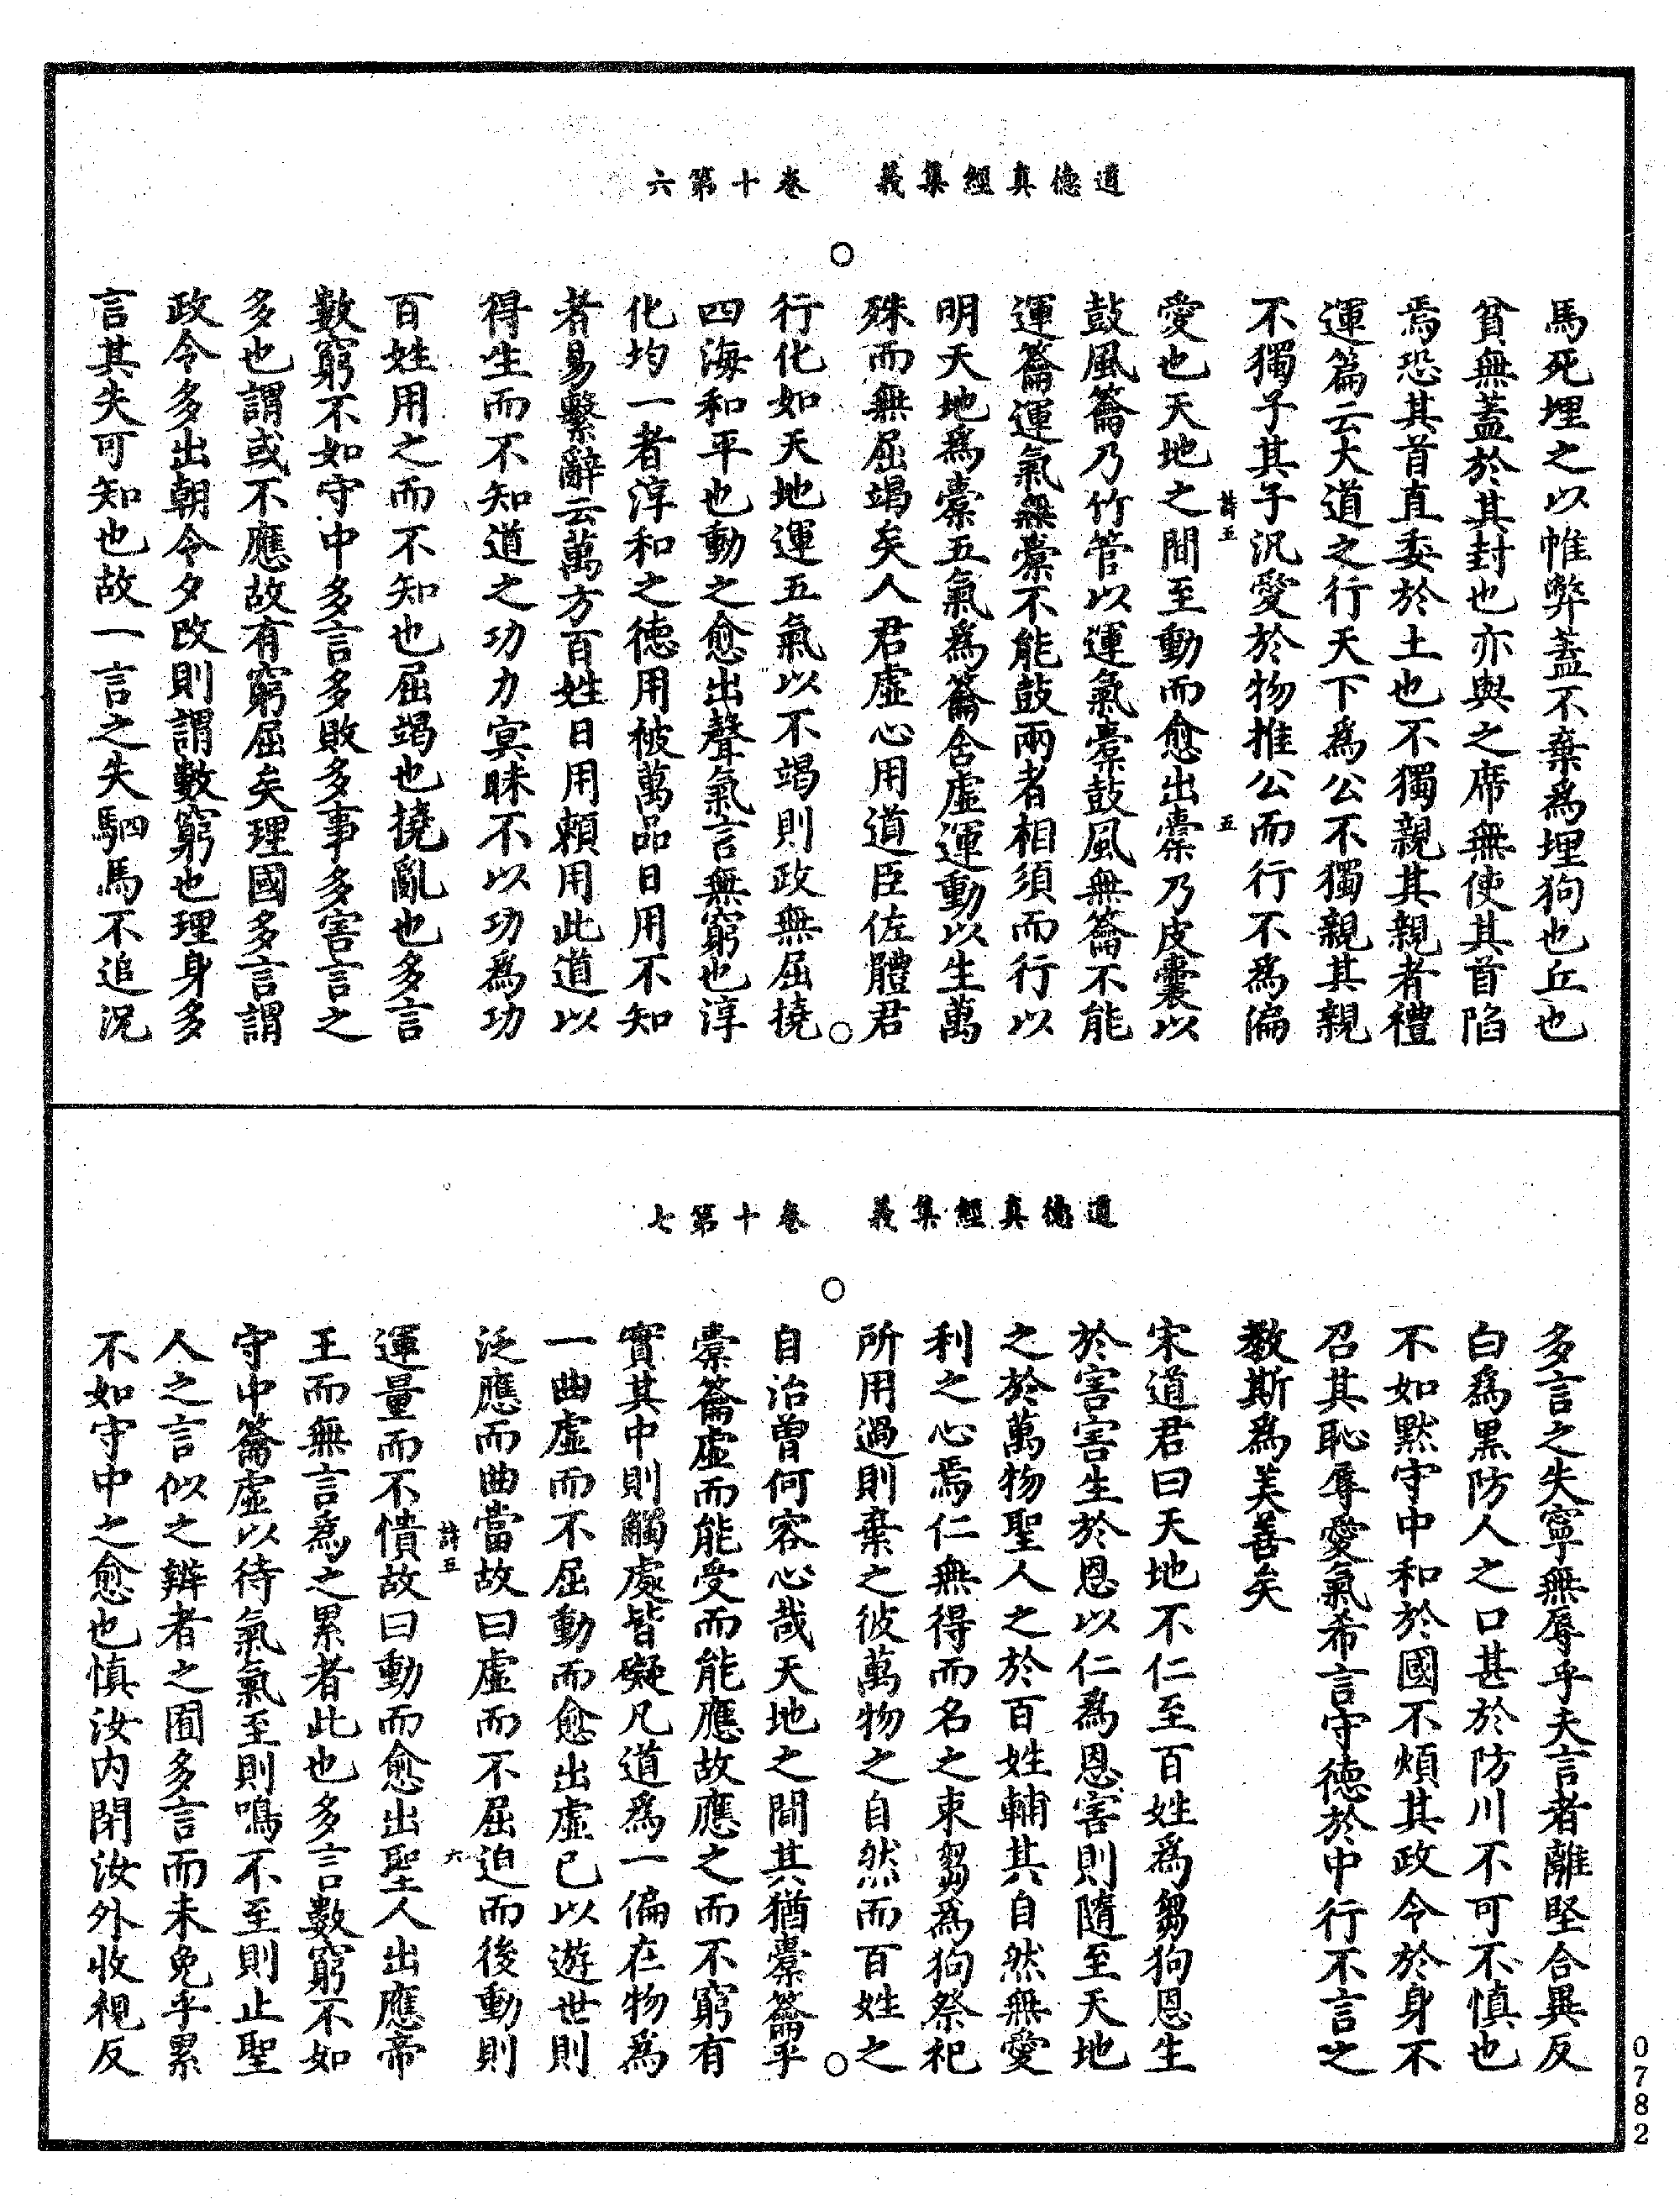 道德真經集義　卷十第六
馬死埋之以帷弊蓋不棄為埋狗也丘也
貧無蓋於其封也亦與之席無使其首陷
焉恐其首直委於土也不獨親其親者禮
運篇云大道之行天下為公不獨親其親
不獨子其子汎愛於物推公而行不為偏
詩五　五
愛也天地之間至動而愈出橐乃皮囊以
鼓風籥乃竹管以運氣橐鼓風無籥不能
運籥運氣無橐不能鼓兩者相須而行以
明天地為橐五氣為籥舍虛運動以生萬
殊而無屈竭矣人君虛心用道臣佐體君
行化如天地運五氣以不竭則政無屈撓
四海和平也動之愈出聲氣言無窮也淳
化均一者淳和之德用被萬品日用不知
者易繫辭云萬方百姓日用賴用此道以
得生而不知道之功力冥昧不以功為功
百姓用之而不知也屈竭也撓亂也多言
數窮不如守中多言多敗多事多害言之
多也謂或不應故有窮屈矣理國多言謂
政令多出朝令夕改則謂數窮也理身多
言其失可知也故一言之失駟馬不追況
道德真經集義　卷十第七
多言之失寧無辱乎夫言者離堅合異反
白為黑防人之口甚於防川不可不慎也
不如默守中和於國不煩其政令於身不
召其恥辱愛氣希言守德於中行不言之
教斯為美善矣
宋道君曰天地不仁至百姓為芻狗恩生
於害害生於恩以仁為恩害則隨至天地
之於萬物聖人之於百姓輔其自然無愛
利之心焉仁無得而名之束芻為狗祭祀
所用過則棄之彼萬物之自然而百姓之
自治曾何容心哉天地之間其猶橐籥乎
橐籥虛而能受而能應故應之而不窮有
實其中則觸處皆礙凡道為一偏在物為
一曲虛而不屈動而愈出虛己以遊世則
泛應而曲當故曰虛而不屈迫而後動則
詩五　六
運量而不憒故曰動而愈出聖人出應帝
王而無言為之累者此也多言數窮不如
守中籥虛以待氣氣至則鳴不至則止聖
人之言似之辯者之囿多言而未免乎累
不如守中之愈也慎汝內閉汝外收視反
0782